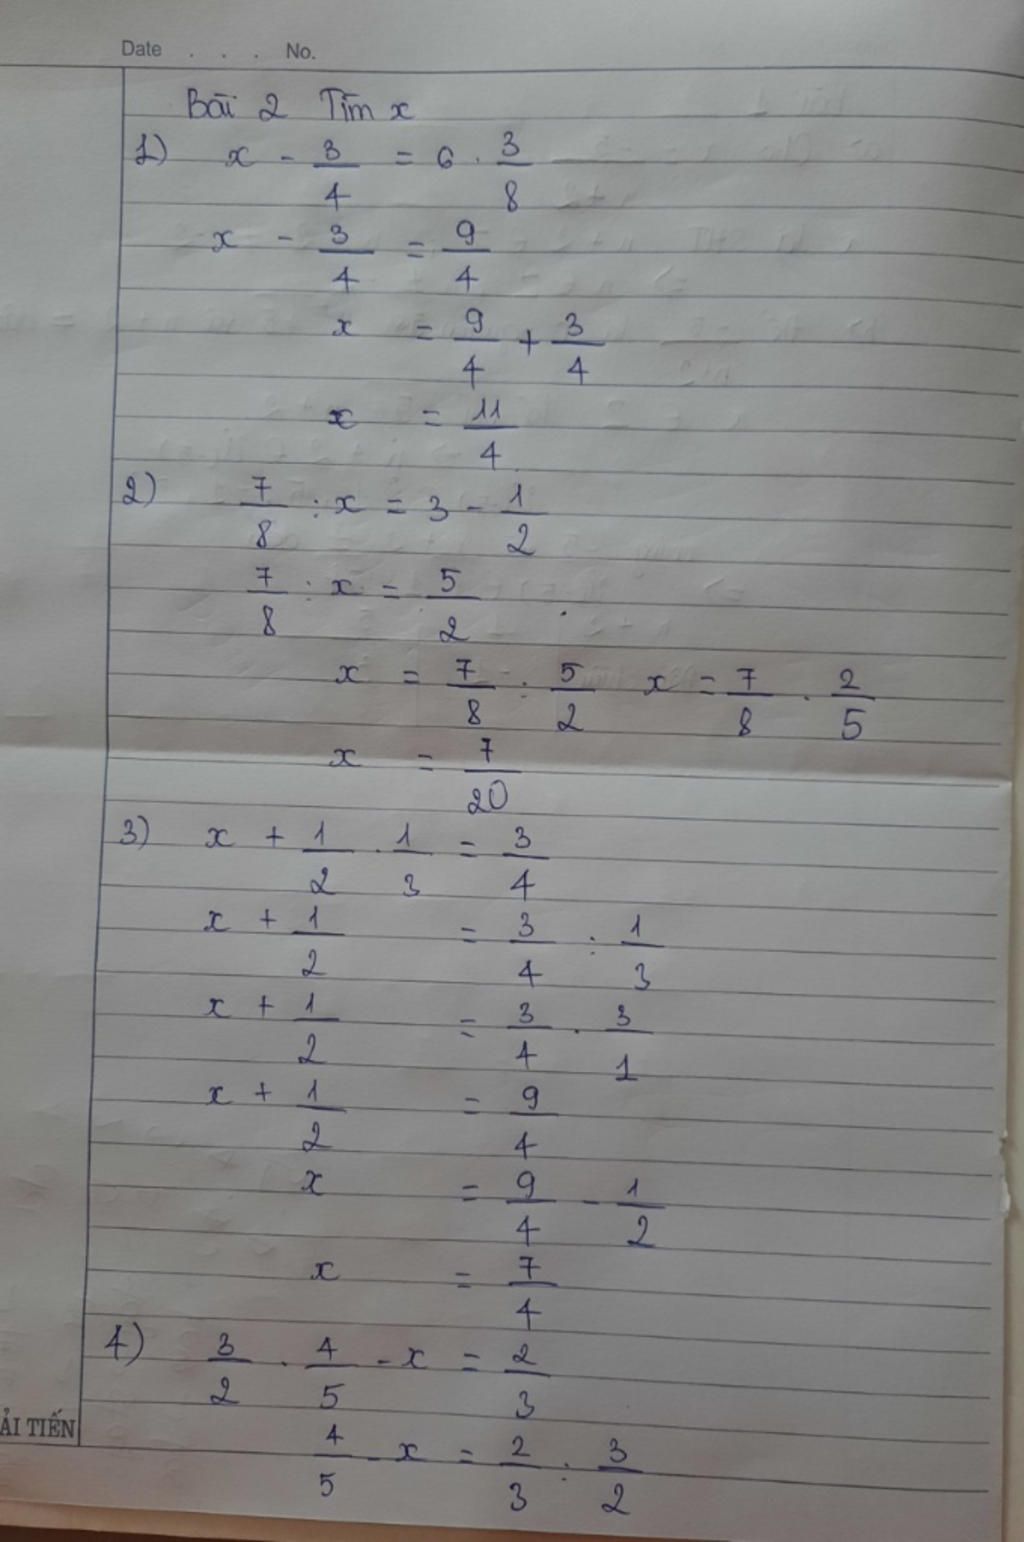 Date . . . No.
Bài 2 Tìm x
1) x - 3/4 = 6 . 3/8
x - 3/4 = 9/4
x = 9/4 + 3/4
x = 11/4
2) 7/8 : x = 3 - 1/2
7/8 : x = 5/2
x = 7/8 : 5/2 x = 7/8 . 2/5
x = 7/20
3) x + 1/2 . 1/3 = 3/4
x + 1/2 = 3/4 : 1/3
x + 1/2 = 3/4 . 3/1
x + 1/2 = 9/4
x = 9/4 - 1/2
x = 7/4
4) 3/2 . 4/5 - x = 2/3
4/5 - x = 2/3 : 3/2
ẢI TIẾN